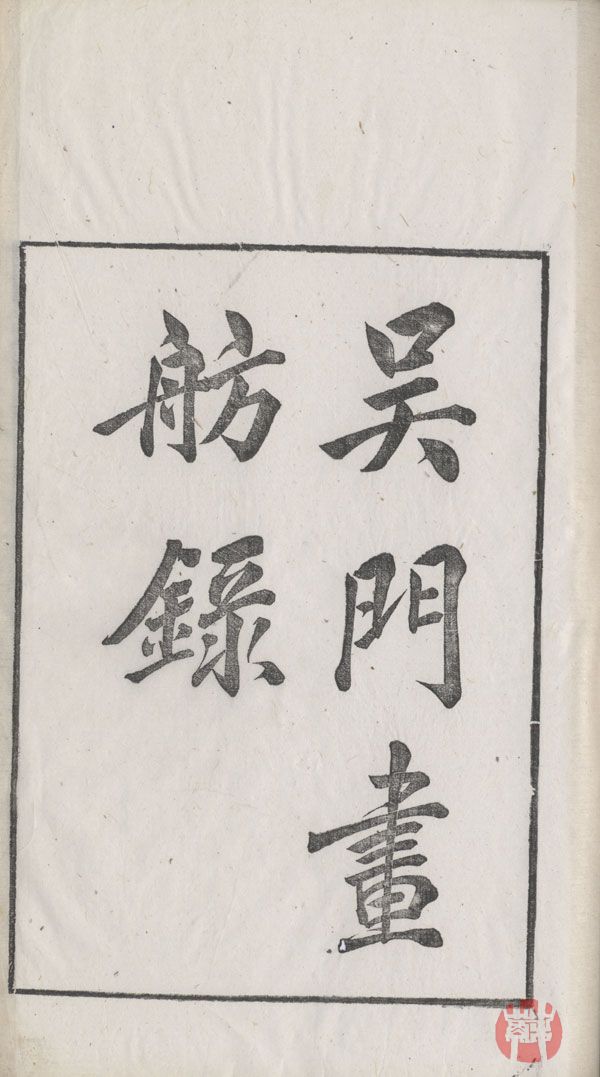 吴門畫
舫錄